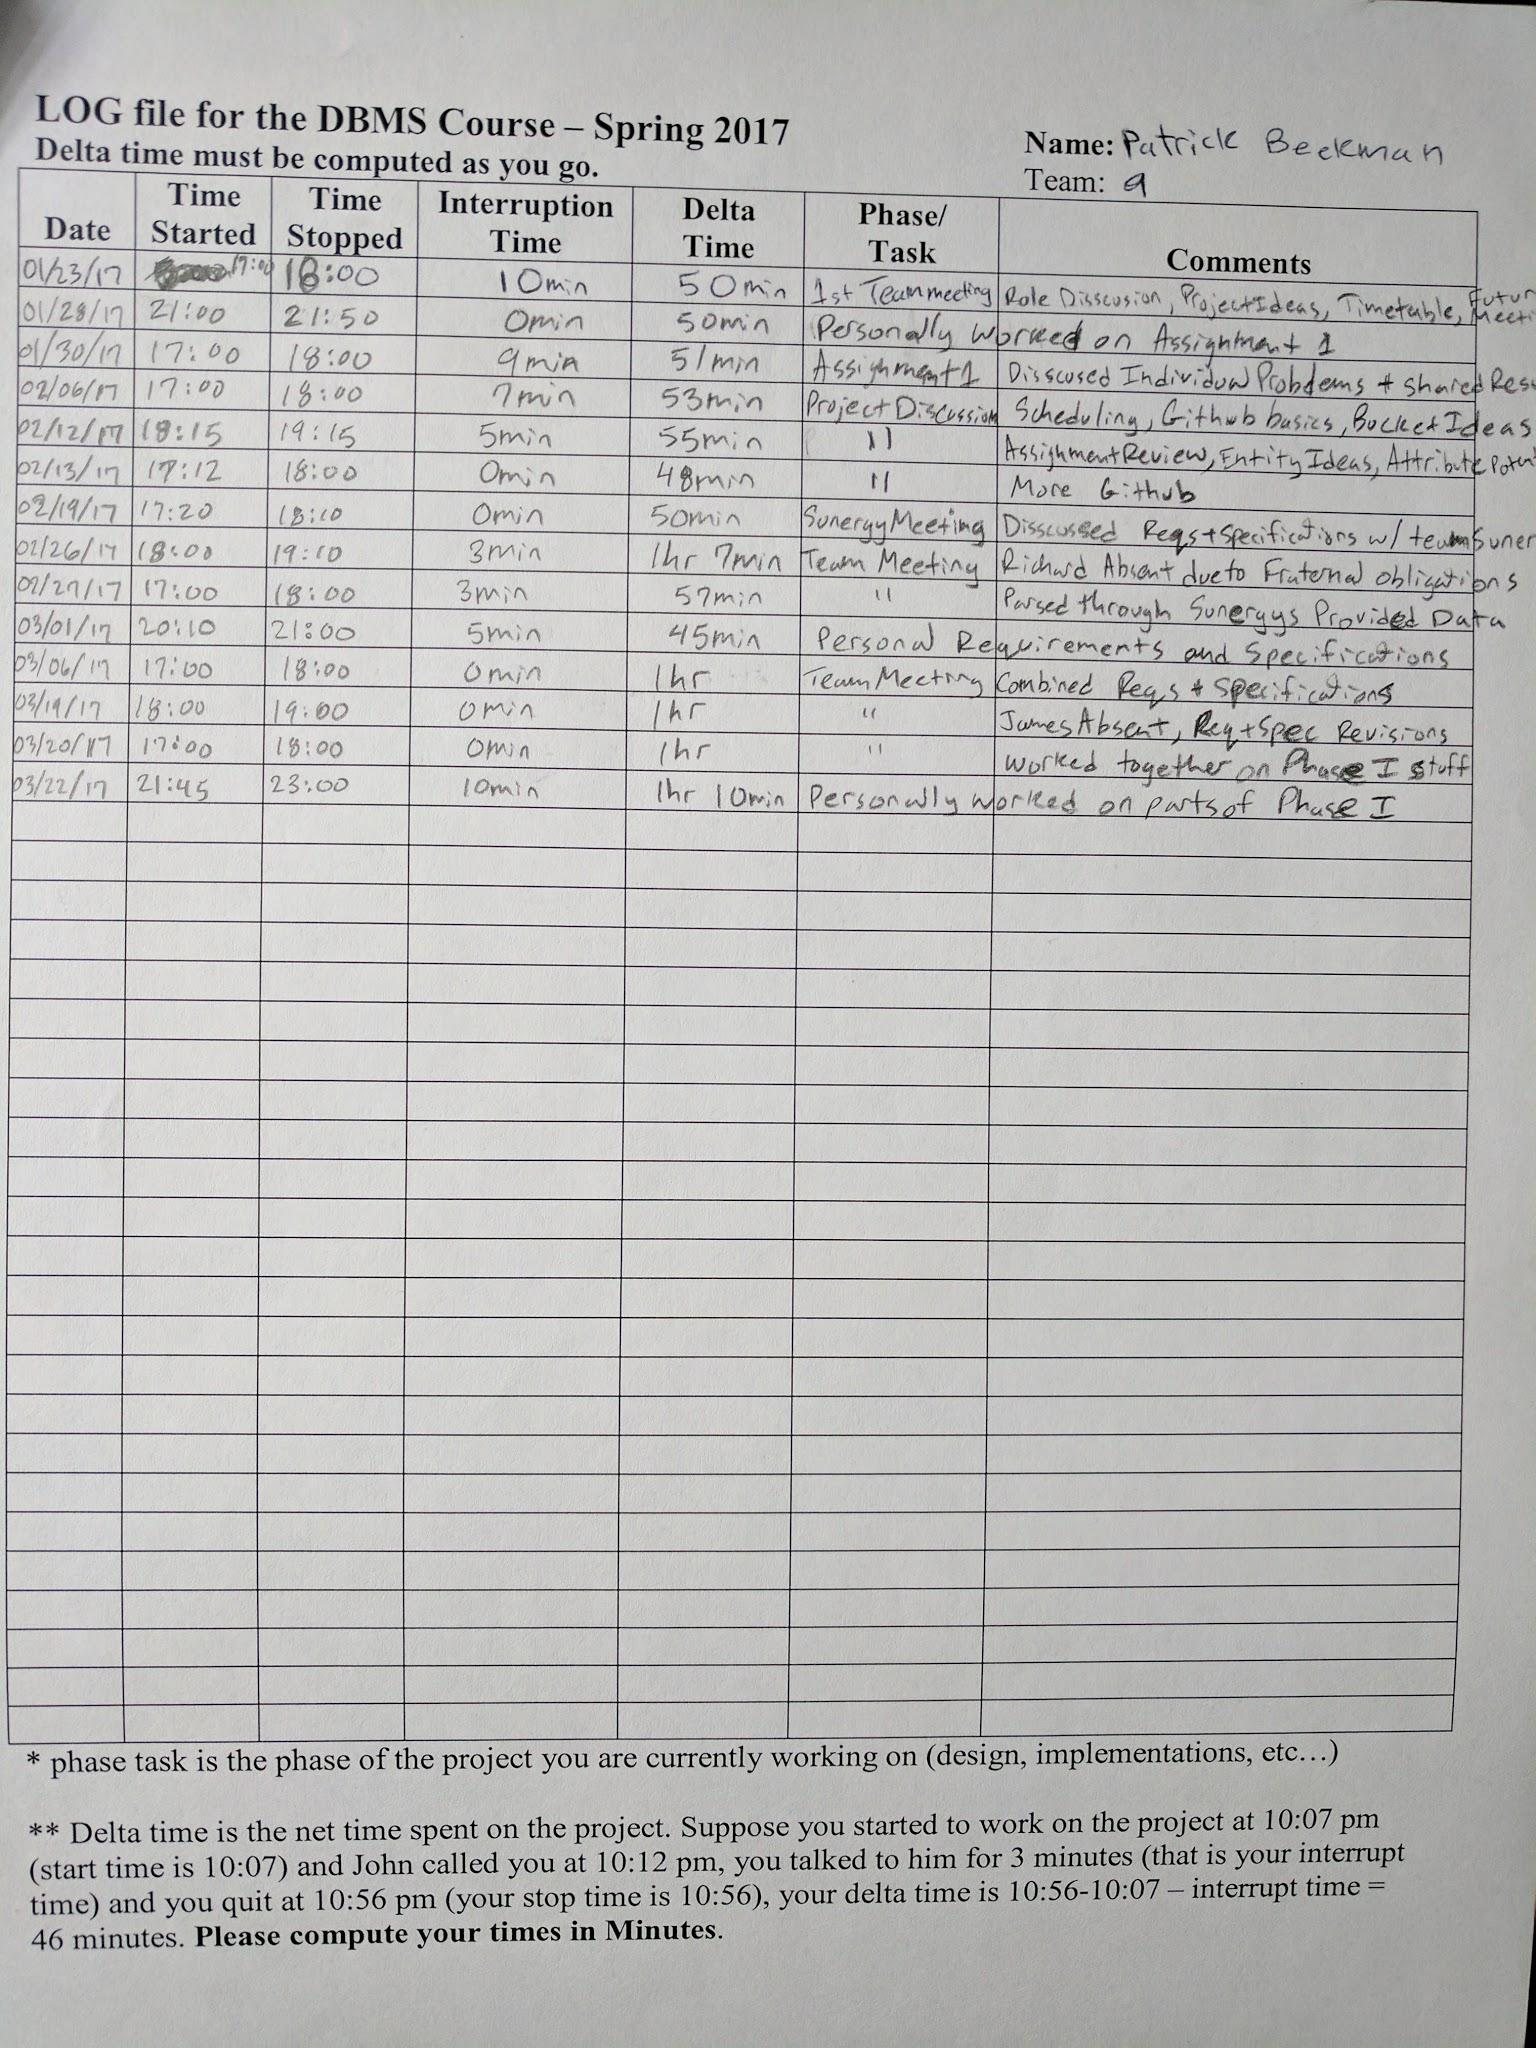 LOG file for the DBMS Course – Spring 2017
Delta time must be computed as you go.
Name: Patrick Beekman
Team: 9
Date Time Started Time Stopped Interruption Time Delta Time Phase/ Task Comments
01/23/17 17:00 18:00 10min 50min 1st Team meeting Role Disscusion, Project Ideas, Timetable,
01/28/17 21:00 21:50 0min 50min Personally worked on Assignment 1
01/30/17 17:00 18:00 9min 51min Assignment 1 Disscused Individual Problems + shared
02/06/17 17:00 18:00 7min 53min Project Discussion Scheduling, Github basics, Bucket Ideas
02/12/17 18:15 19:15 5min 55min " Assignment Review, Entity Ideas, Attribute
02/13/17 17:12 18:00 0min 48min " More Github
02/19/17 17:20 18:10 0min 50min Sunergy Meeting Disscussed Reqs + Specifications w/ team
02/26/17 18:00 19:10 3min 1hr 7min Team Meeting Richard Absent due to Fraternal obligations
02/27/17 17:00 18:00 3min 57min " Parsed through Sunergys Provided Data
03/01/17 20:10 21:00 5min 45min Personal Requirements and Specifications
03/06/17 17:00 18:00 0min 1hr Team Meeting Combined Reqs + Specifications
03/19/17 18:00 19:00 0min 1hr " James Absent, Req + Spec Revisions
03/20/17 17:00 18:00 0min 1hr " worked together on Phase I stuff
03/22/17 21:45 23:00 10min 1hr 10min Personally worked on parts of Phase I
* phase task is the phase of the project you are currently working on (design, implementations, etc…)
** Delta time is the net time spent on the project. Suppose you started to work on the project at 10:07 pm
(start time is 10:07) and John called you at 10:12 pm, you talked to him for 3 minutes (that is your interrupt
time) and you quit at 10:56 pm (your stop time is 10:56), your delta time is 10:56-10:07 – interrupt time =
46 minutes. Please compute your times in Minutes.